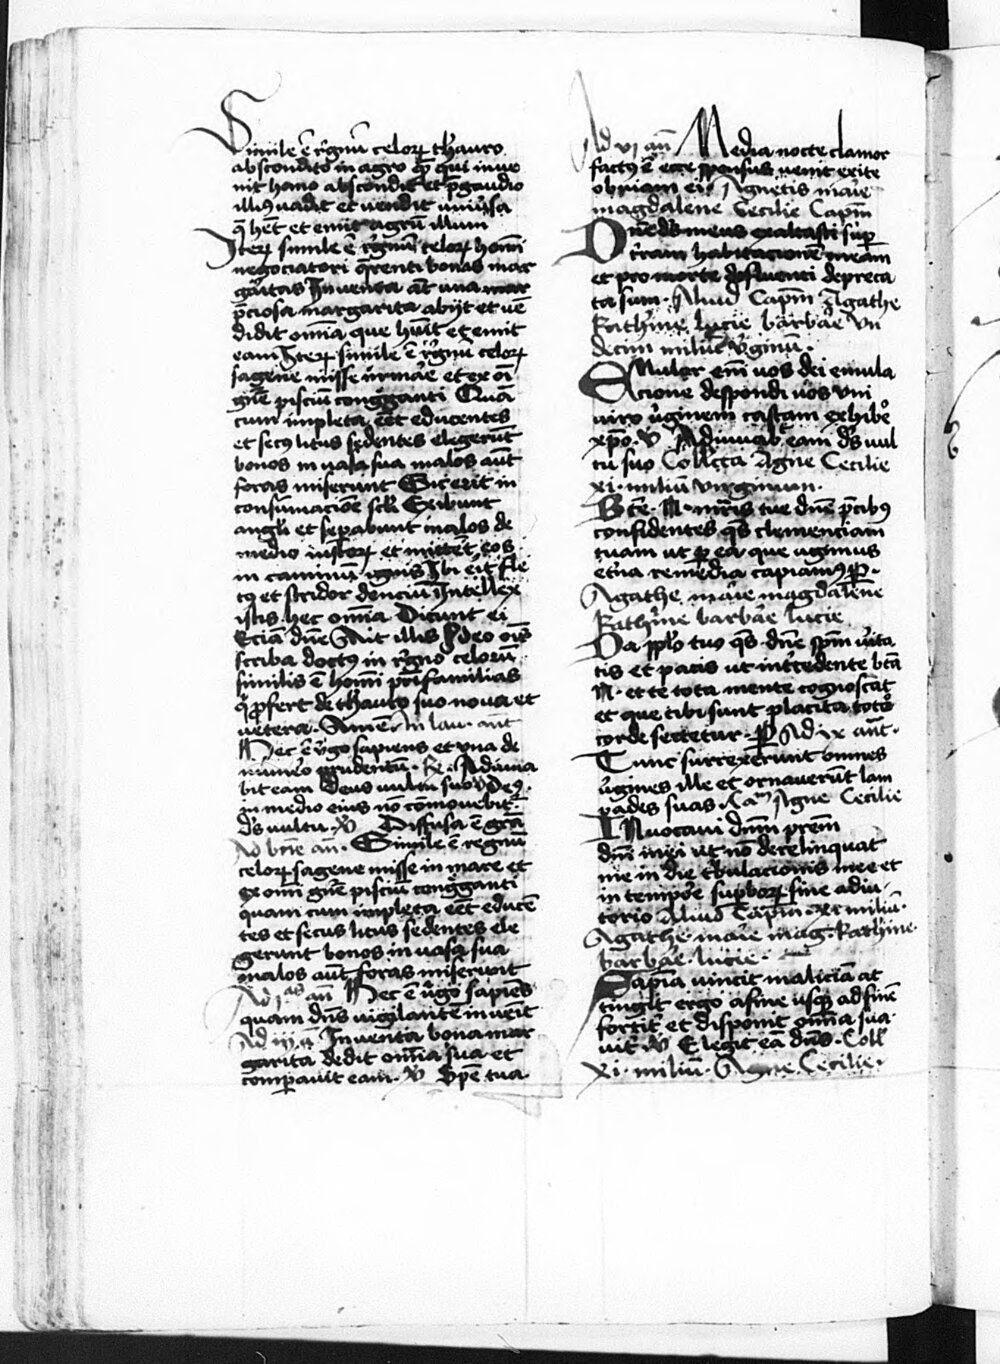 Simile ē rignū celoꝝ thauro
abscondito in agro qꝫ qui inve
nit homo abscondit et p̄ gaudio
illiꝰ vadit et vendit univsa
q̄ het et emit agrū illum
Iteꝝ simile ē rignū celoꝝ homī
negociatori q̄renti bonas mar
gaītas Inventa āt una mar
p̄ciosa margarita abijt et vē
didit omīa que huit et emit
eam Iteꝝ simile ē rignū celoꝝ
sagene misse in māe et ex oī
gīe pisciū conggganti Quā
cum impleta eēt educentes
et secꝰ litus sedentes elegerūt
bonos in vasa sua malos aūt
foras miserunt Sic erit in
consumacioē scli Exibunt
angli et sepabunt malos de
medio iustoꝝ et mittēt eos
in caminū ignis Ibi eīt fle
tꝰ et stridor denciū Intellex
istis hec omīa Dicunt ei
Eciā dūe Ait illis Ideo oīs
scriba doctꝰ in rigno celorū
similis ē homī pr̄ifamilias
q̄ ꝓfert de thauro suo nova et
vetera. Amē In lau. ant
Hec ē v̄go sapiens et una de
numēo prudentū. Rx. Adiuva
bit eam Deus vultu suo v Deꝰ.
in medio eius nō cōmovebit̄.
Dꝰ vultu. V Diffusa ē grā
Ad bn̄e an. Simile ē regnū
celoꝝ sagene misse in mare et
ex omī gīe pisciū conggganti
quam cum impleta eēt educē
tes et secus litus sedentes ele
gerunt bonos in vasa sua
malos aūt foras miserunt
Ad jᵃᵐ an Hec ē v̄go sapiēs
quam dn̄s vigilantē inveīt
Ad iij a Inventa bona mar
garita dedit omīa sua et
compavit eam. V Spē tua
Ad vi an Media nocte clamor
factꝰ ē ecce sponsus venit exite
obviam ei Agnetis maīe
magdalene Cecilie Capm̄
Dn̄e dꝰ meus exaltasti sup
t̄ram habitacionē meam
et pro morte defluenti depreca
ta sum. Aliud Capm̄ Agathe
Kath'ine lucie barbāe Un
decim miliū v̄ginū.
Emulor eni vos dei emula
cione despondi vos uni
viro v̄ginem castam exhibē
xp̄o. V Adiuvabit eam dꝰ vul
tu suo Collecta Agne Cecilie
xi miliū virginum.
Bt̄e. N. mr̄is tue dn̄e p̄cibꝰ
confidentes qs clemenciam
tuam ut p ea que agimus
et̄na remedia capiamꝰ p.
Agathe maīe magdalene
Kath'ine barbāe lucie
Da pplo tuo qs dn̄e spm̄ v̄ita
tis et pacis ut int̄cedente bt̄ā
N. et te tota mente cognoscat
et que tibi sunt placita toto
corde sectetur. P Ad ix ant.
Tunc surrexerunt omnes
v̄gines ille et ornaverūt lam
pades suas. Caᵐ Agne Cecilie
Invocavi dn̄m prēm
dn̄i mei ut nō derelinquat
me in die t̄bulacionis mee et
in tempōe supboꝝ sine adiu
torio Aliud Capm̄. xi miliū.
Agathe maīe mag. Kath'ine
barbāe lucie.
Sapia vincit maliciā at
tingit ergo a fine usqꝫ ad finē
fortit̄ et disponit omīa sua
vit̄ V Elegit eā dn̄s. Coll
xi. miliū. Agne Cecilie.